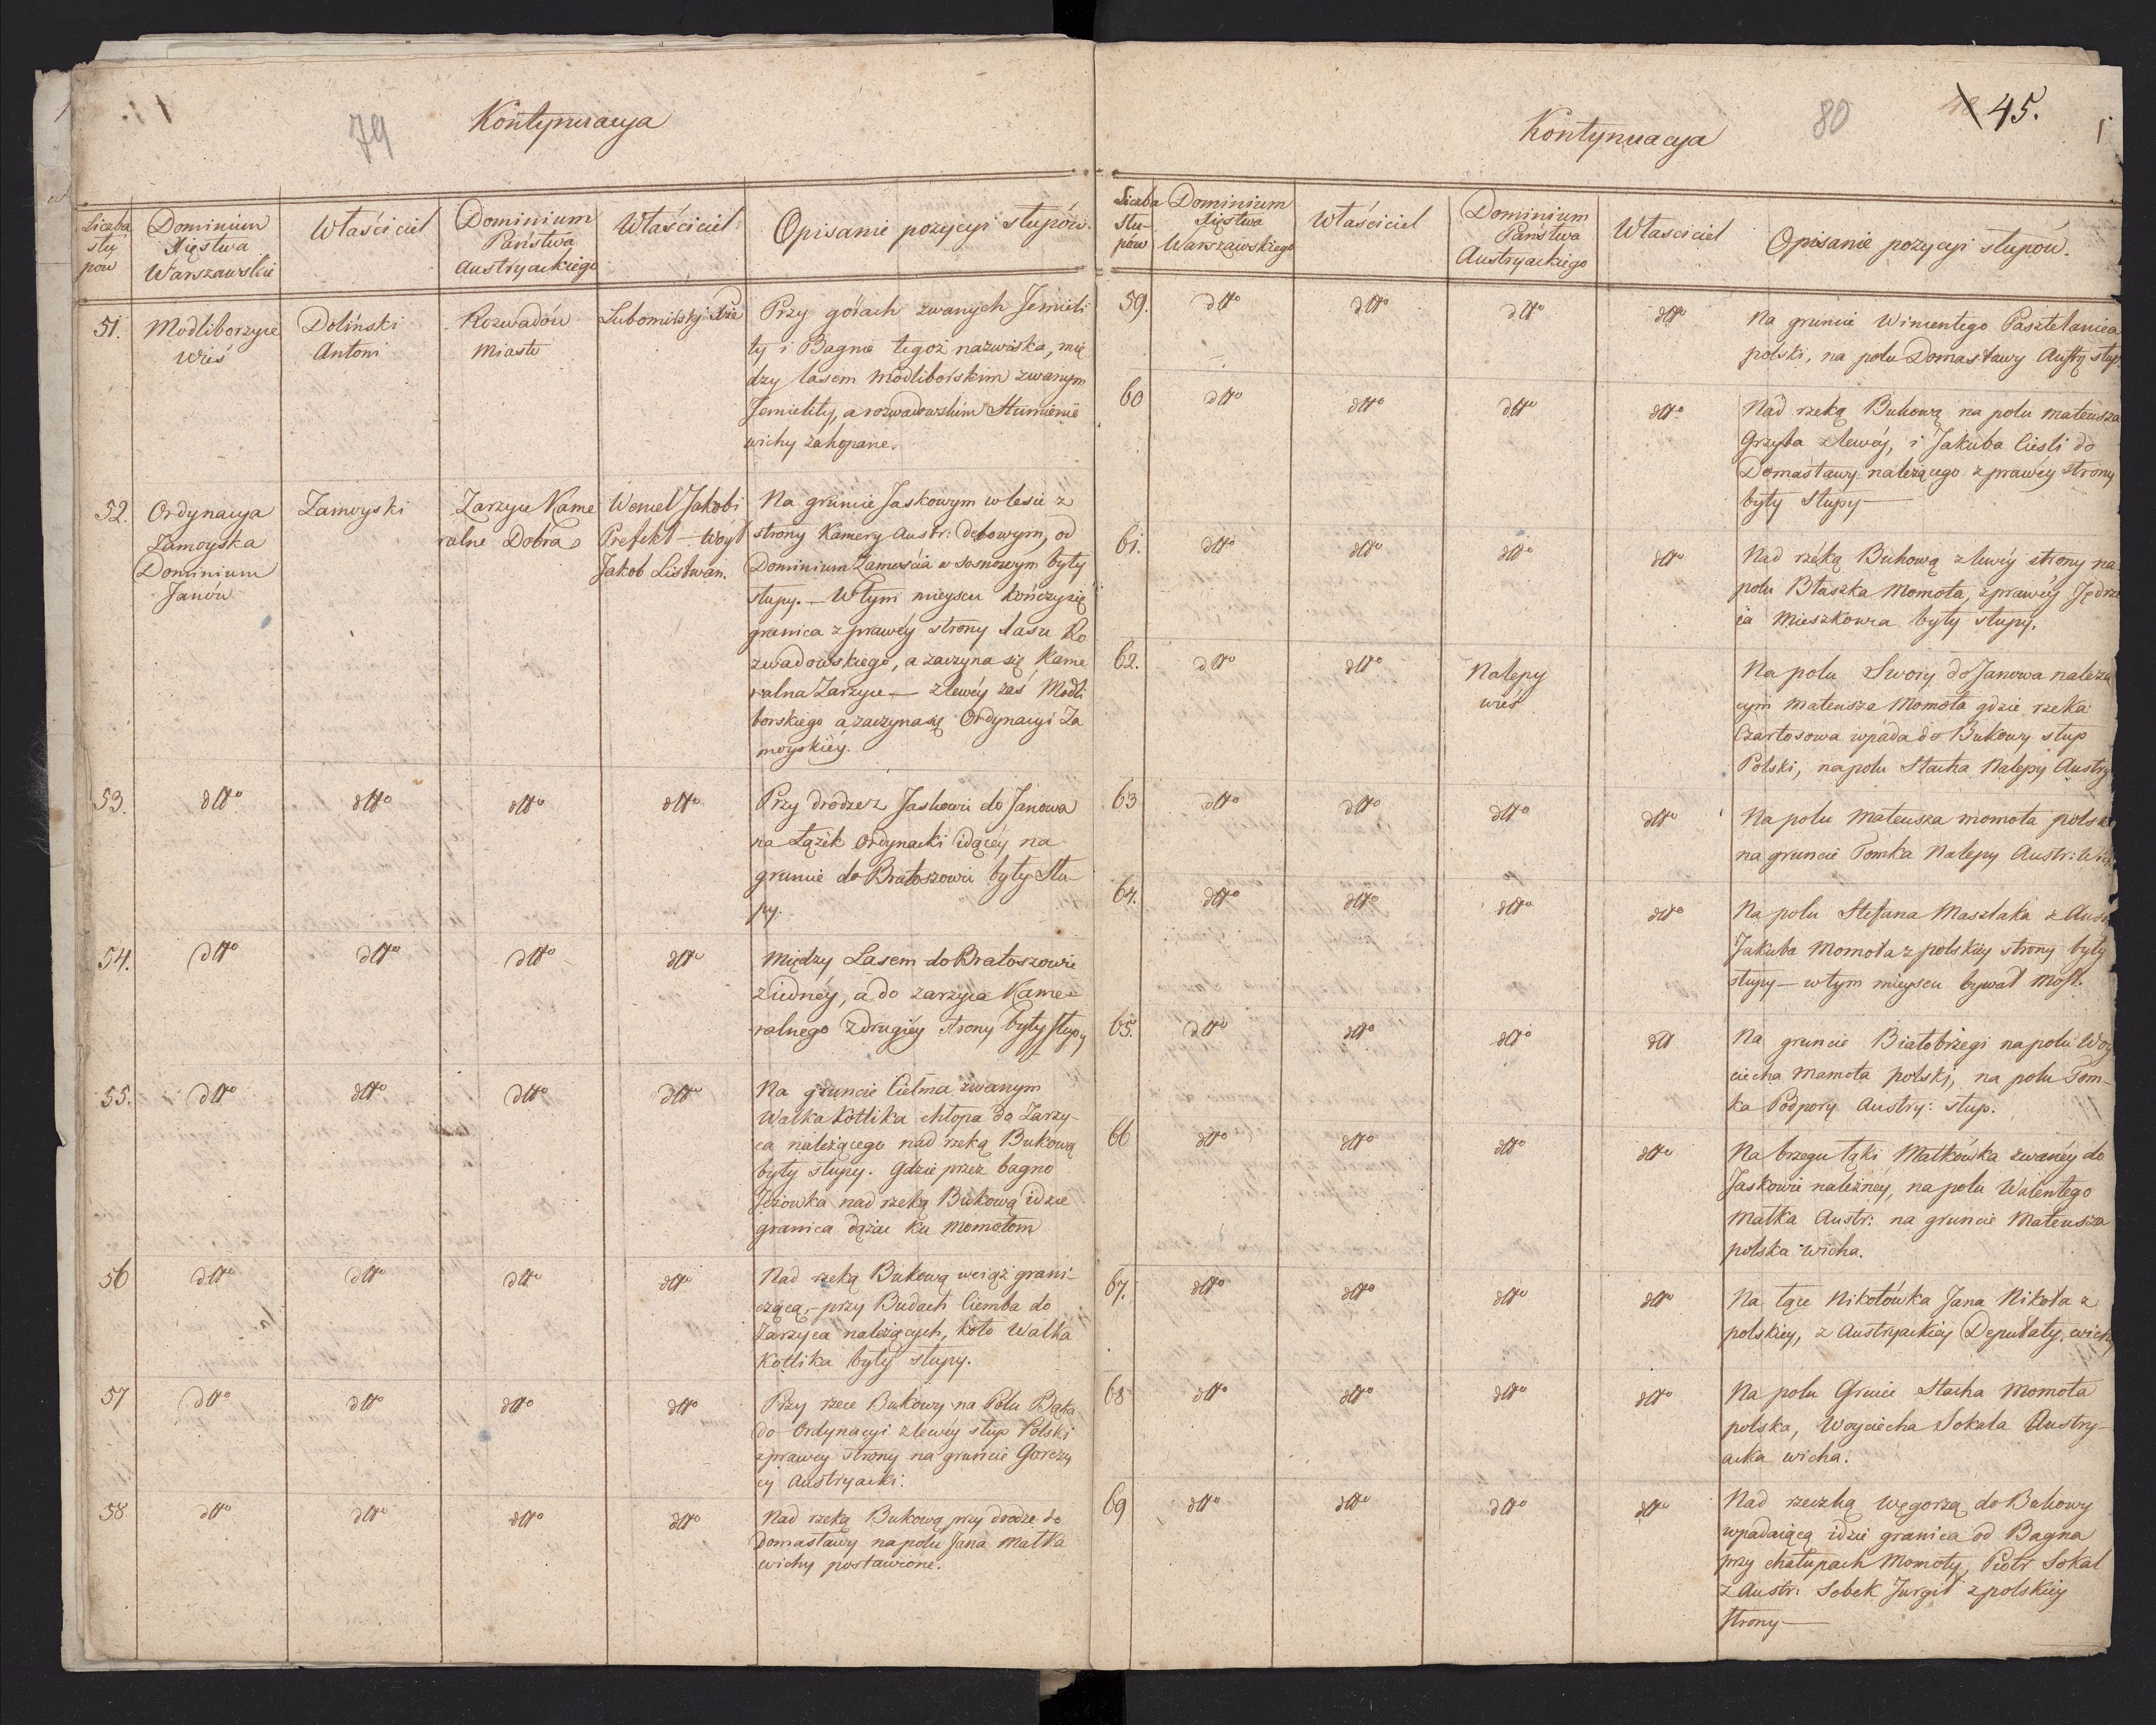 79
Kontynuacya
Liczba słupów
Dominium Xięstwa Warszawskie
Właściciel
Dominium Państwa Austryackiego
Właściciel
Opisanie pozycyi słupów.
51.
Modliborzyce
Wieś
Doliński
Antoni
Rozwadów
Miasto
Lubomirsky Xże
Przy górach zwanych Jemieli
ty i Bagnie tegoż nazwiska, mię
dzy lasem modliborskim zwanym
Jemielity, a rozwadowskim
wichy zakopane.
52.
Ordynacya
Zamoyska
Dominium
Janów
Zamoyski
Zarzyce Kame
ralne Dobra
Wencel Jakobi
Prefekt – Wóyt
Jakob Listwan.
Na gruncie Jaskowym w lesie z
strony Kamery Austr: dębowym, od
Dominium Zamościa w sosnowym były
słupy. – W tym mieyscu kończy się
granica z prawéy strony lasu Ro
zwadowskiego, a zaczyna się Kame
ralna Zarzyce – z lewéy zaś Modli
borskiego a zaczyna się Ordynacyi Za
moyskiéy.
53.
dtto
dtto
dtto
dtto
Przy drodze z Jaskowic do Janowa
na Łążek Ordynacki idącéy na
gruncie do Bratoszowic były Słu
py.
54.
dtto
dtto
dtto
dtto
Między Lasem do Bratoszowic
z iednéy, a do zarzyca Kame
ralnego z drugiéy strony były słupy
55.
dtto
dtto
dtto
dtto
Na gruncie Cielma zwanym
Walka Kotlika chłopa do Zarzy
ca należącego nad rzeką Bukową
były słupy. Gdzie przez bagno
Jżowka nad rzeką Bukową idzie
granica dążąc ku Momotom
56
dtto
dtto
dtto
dtto
Nad rzeką Bukową wciąż grani-
czącą, – przy Budach Ciemba do
Zarzyca należących, koło Walka
Kotlika były słupy.
57
dtto
dtto
dtto
dtto
Przy rzece Bukowy na Polu Bąka
do Ordynacyi z lewéy słup Polski
z prawey strony na gruncie Gorczy
cy Austryacki.
58
dtto
dtto
dtto
dtto
Nad rzeką Bukową przy drodze do
Domastawy na polu Jana Małka
wichy postawione.
80
45.
Kontynuacya
Liczba Słupów
Dominium Xięstwa Warszawskiego
Właściciel
Dominium Państwa Austryackiego
Właściciel
Opisanie pozycyi słupów.
59.
dtto
dtto
dtto
dtto
Na gruncie Wincentego Pasztelanica
polski, na polu Domastawy Austry słup
60
dtto
dtto
dtto
dtto
Nad rzeką Bukową na polu mateusza
Grzyba z lewéy, i Jakuba Cieśli do
Domastawy należącego z prawey strony
były słupy –
61.
dtto
dtto
dtto
dtto
Nad rzéką Bukową z lewéy strony na
polu Błaszka Momota, z prawéy Jędrze
ia Mieszkowca były słupy.
62.
dtto
dtto
Nalepy
wieś
Na polu Swory do Janowa należą
cym mateusza Momota gdzie rzeka
Czartosowa wpada do Bukowy słup
Polski, na polu Stacha Nalepy Austry
63
dtto
dtto
dtto
dtto
Na polu Mateusza momota polska
na gruncie Tomka Nalepy Austr:
64.
dtto
dtto
dtto
dtto
Na polu Stefana Maszlaka z Austr
Jakuba Momota z polskiey strony były
słupy – w tym mieyscu bywał most.
65.
dtto
dtto
dtto
dtt
Na gruncie Białobrzegi na polu Woy
ciecha Mamota polski, na polu Tom-
ka Podpory Austry: słup.
66
dtto
dtto
dtto
dtto
Na brzegu łąki Małkówka zwanéy do
Jaskowic należnéy, na polu Walentego
Małka Austr: na gruncie Mateusza
polska wicha.
67.
dtto
dtto
dtto
dtto
Na łące Nikołówka Jana Nikoła z
polskiey, z Austryackiey Deputaty. wichy
68
dtto
dtto
dtto
dtto
Na polu Stacha Momota
polska, Woyciecha Sokala Austry-
acka wicha.
69
dtto
dtto
dtto
dtto
Nad rzeczką Węgorzą do Bukowy
wpadaiącą idzie granica od Bagna
przy chałupach Momoty, Piotr Sokal
z Austr: Sobek Jurgił z polskiéy
strony –